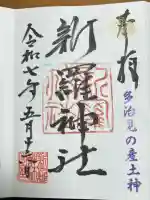 奉拝
多治見の産土神
新羅神社
令和七年五月